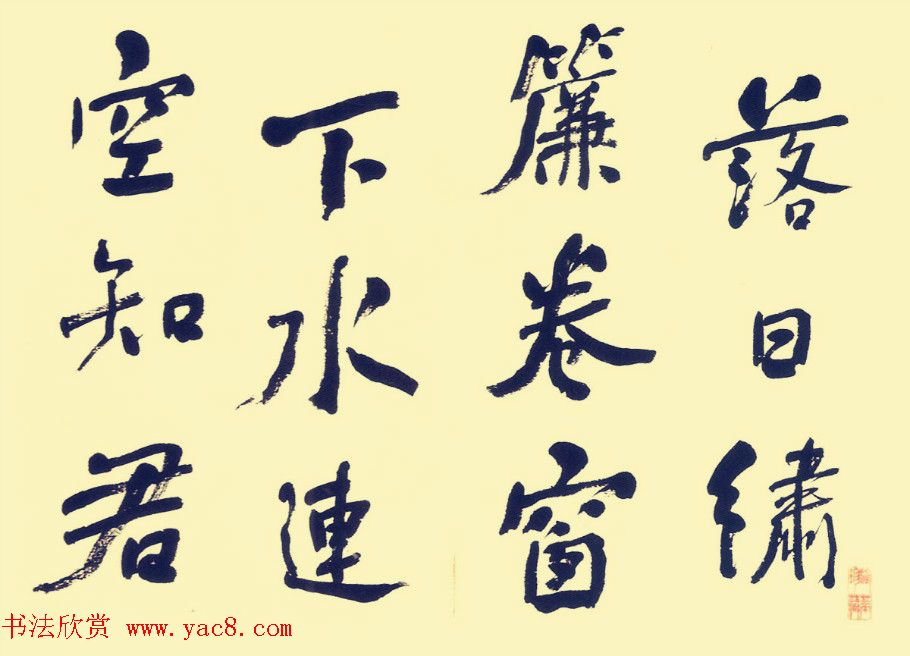 落日繡
簾卷窗
下水連
空知君
书法欣赏 www.yac8.com